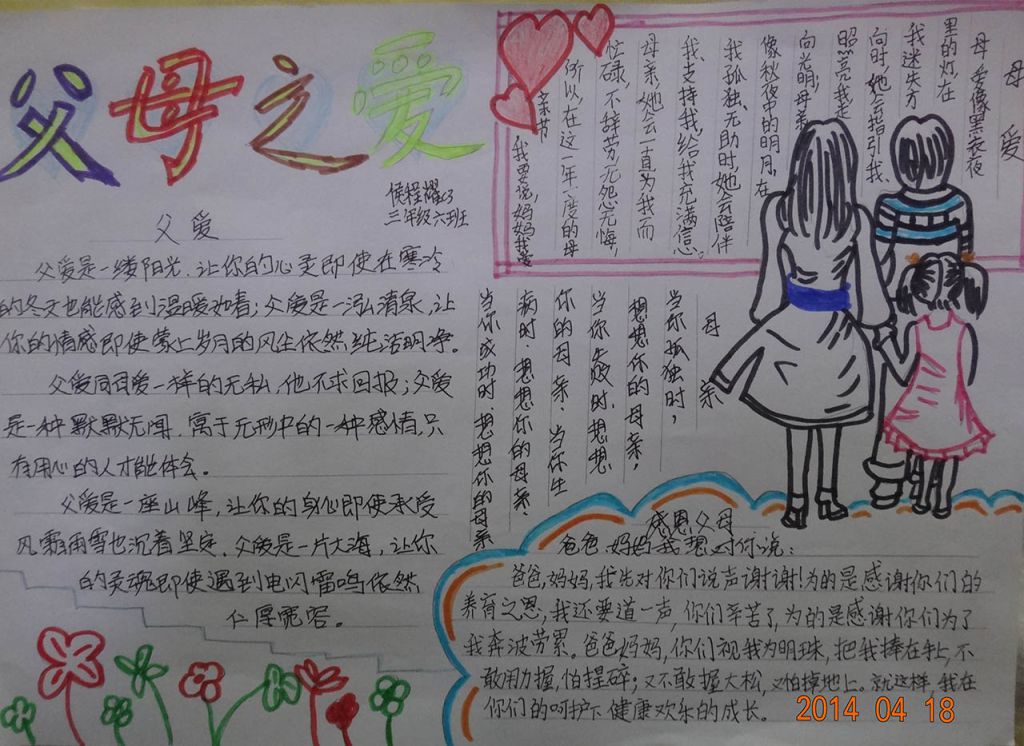 父母之爱
侯程耀43
三年级六班
父爱
父爱是一缕阳光,让你的心灵即使在寒冷
的冬天也能感到温暖如春;父爱是一泓清泉,让
你的情感即使蒙上岁月的风尘依然纯洁明净。
父爱同母爱一样的无私,他不求回报;父爱
是一种默默无闻,寓于无形中的一种感情,只
有用心的人才能体会。
父爱是一座山峰,让你的身心即使承受
风霜雨雪也沉着坚定,父爱是一片大海,让你
的灵魂即使遇到电闪雷鸣依然
仁厚宽容。
母爱
母爱像黑夜
里的灯,在
我迷失方
向时,她会指引我,
照亮我走
向光明,母亲
像秋夜中的明月,在
我孤独、无助时,她会陪伴
我,支持我,给我充满信心。
母亲,她会一直为我而
忙碌,不辞劳,无怨无悔,
所以在这一年一度的母
亲节
我要说,妈妈我爱
母亲
当你孤独时,
想想你的母亲,
当你失败时,想想
你的母亲、当你生
病时,想想你的母亲、
当你成功时,想想你的母亲
感恩父母
爸爸,妈妈我想对你说:
爸爸,妈妈,我先对你们说声谢谢!为的是感谢你们的
养育之恩;我还要道一声,你们辛苦了,为的是感谢你们为了
我奔波劳累。爸爸妈妈,你们视我为明珠,把我捧在手上,不
敢用力握,怕捏碎;又不敢握太松,又怕掉地上。就这样,我在
你们的呵护下健康欢乐的成长。
2014 04 18